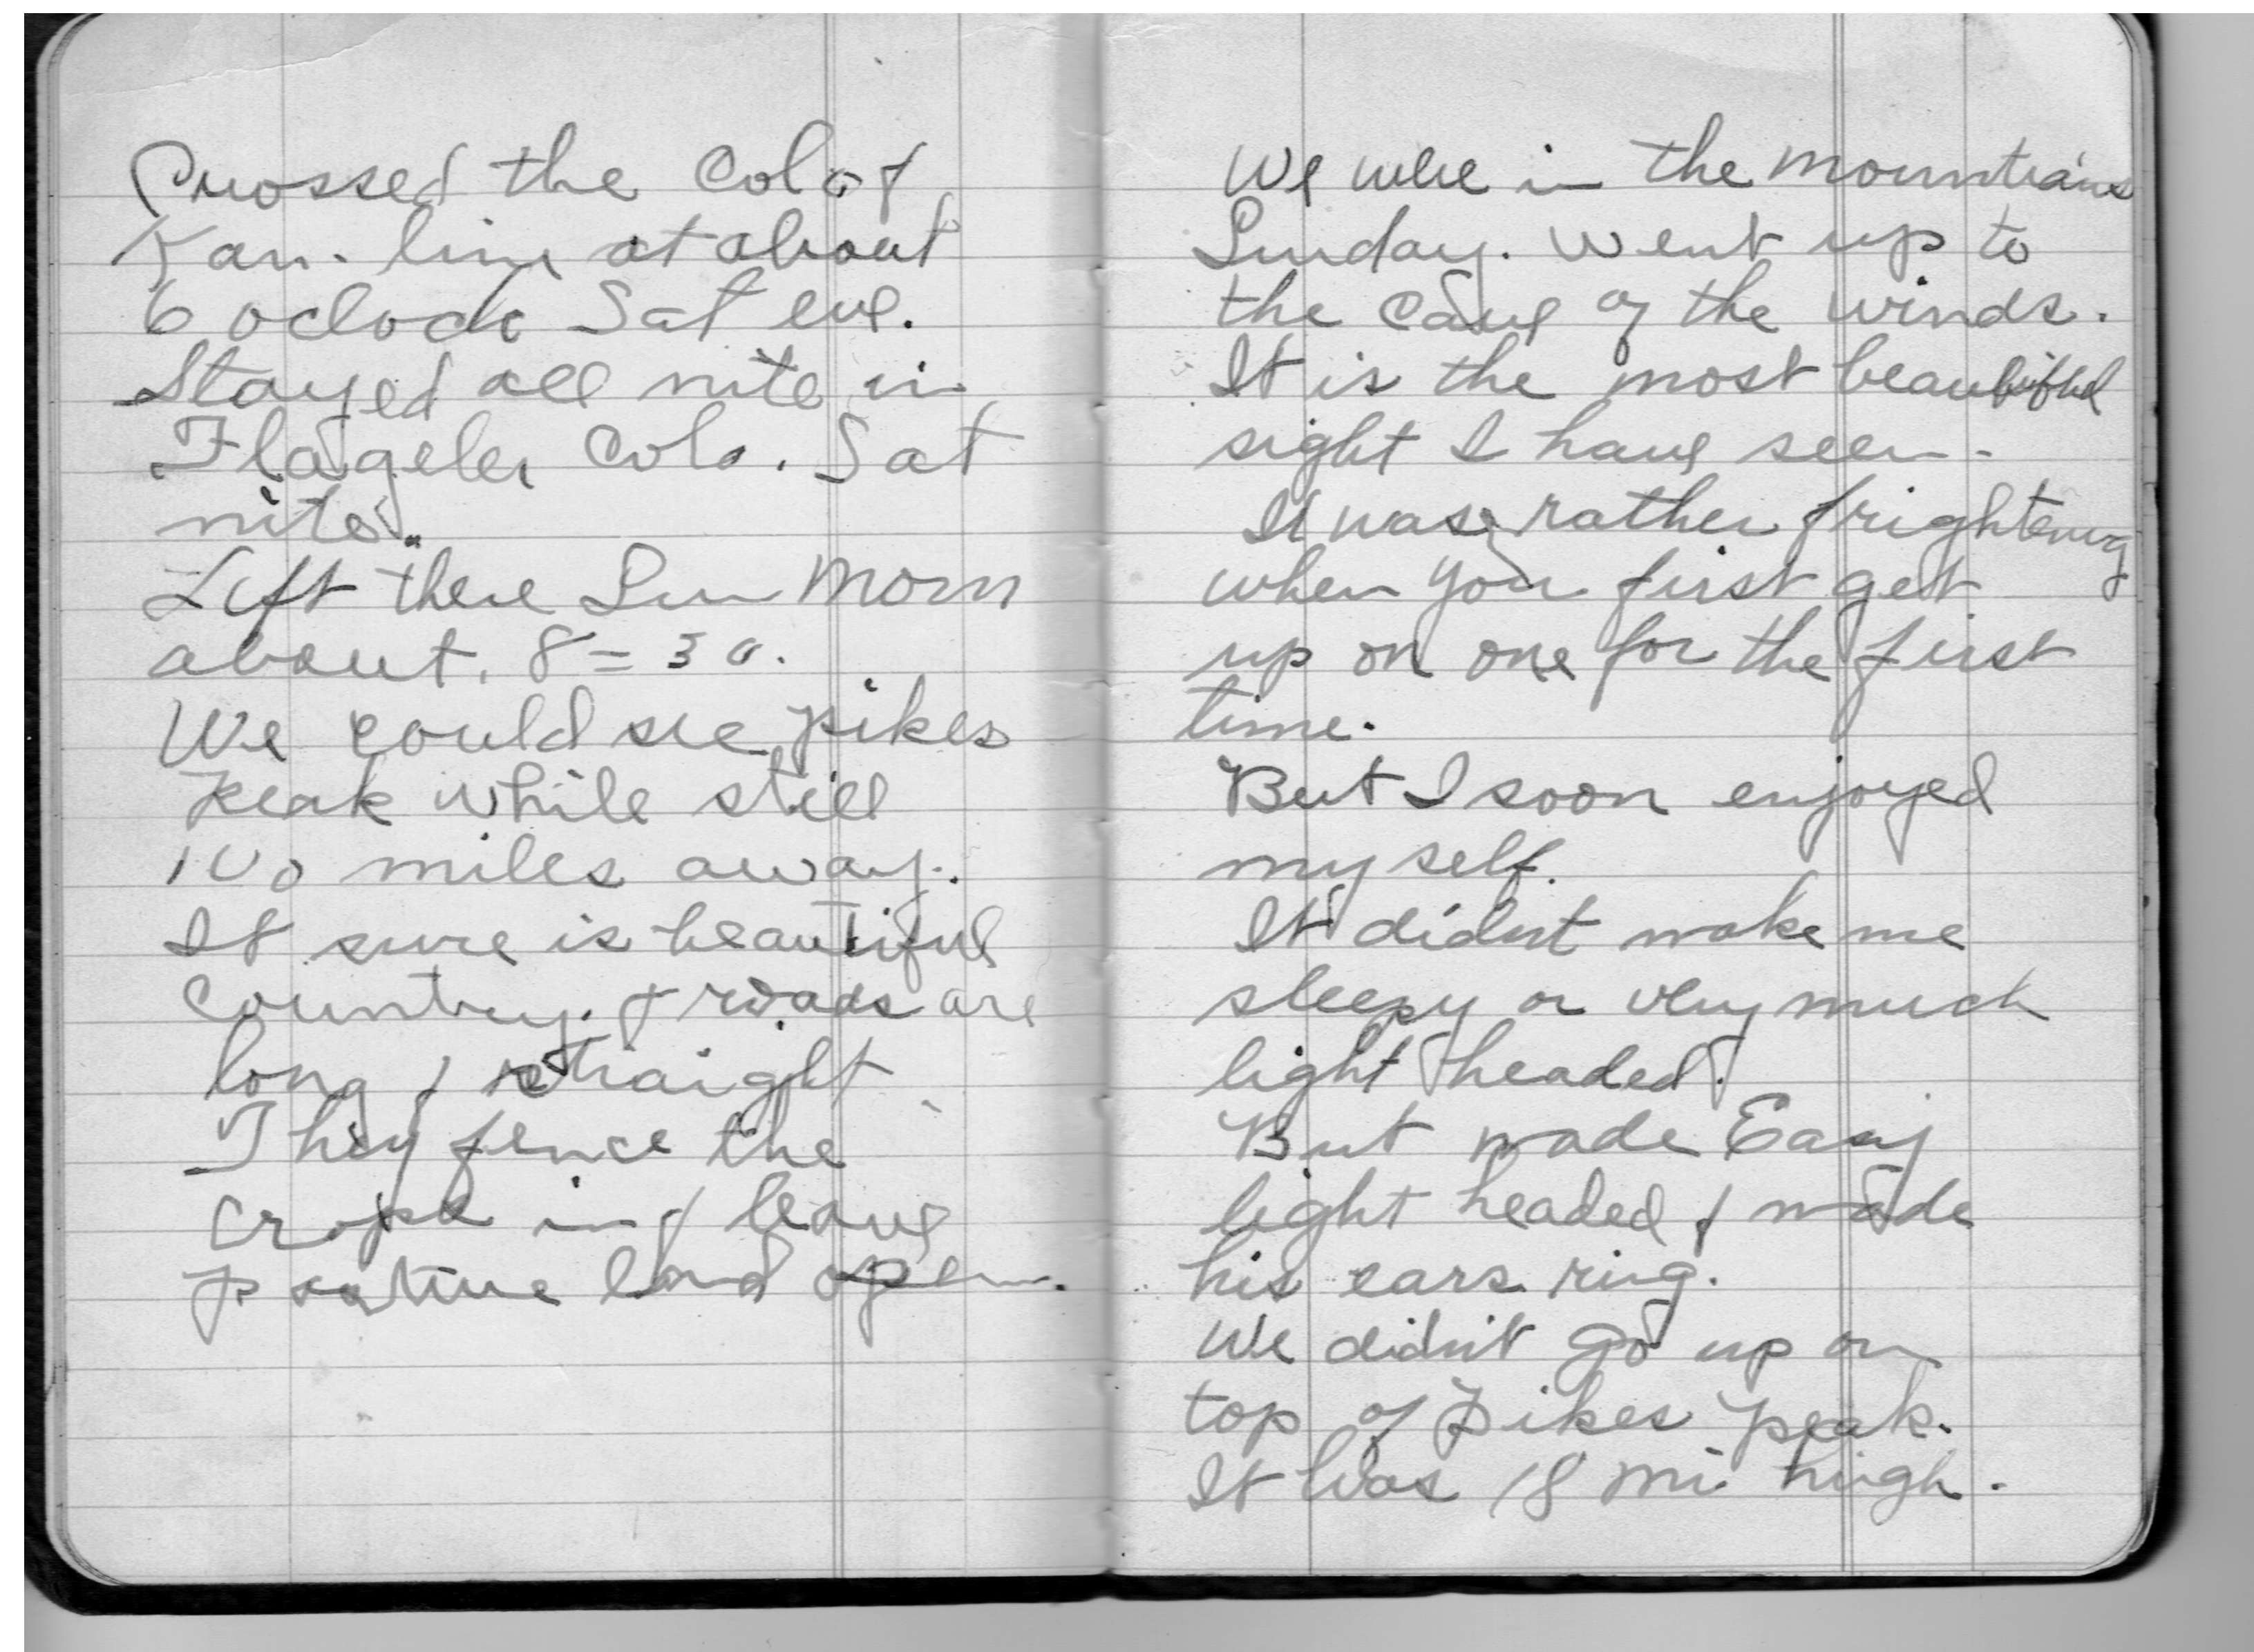 Crossed the Colo &
Kan. line at about
6 oclock Sat eve.
Stayed all nite in
Flageler Colo. Sat
nite.
Left there Sun Morn
about. 8=30.
We could see pikes
peak while still
100 miles away.
It sure is beautiful
Country. & roads are
long & straight
They fence the
crops in & leave
pasture land open.
We were in the mountains
Sunday. Went up to
the Cave of the winds.
It is the most beautiful
sight I have seen.
It was rather frightening
when you first get
up on one for the first
time.
But I soon enjoyed
my self.
It didnt make me
sleepy or very much
light headed.
But made
light headed & made
his ears ring.
We didn't go up on
top of Pikes peak.
It was 18 mi high.